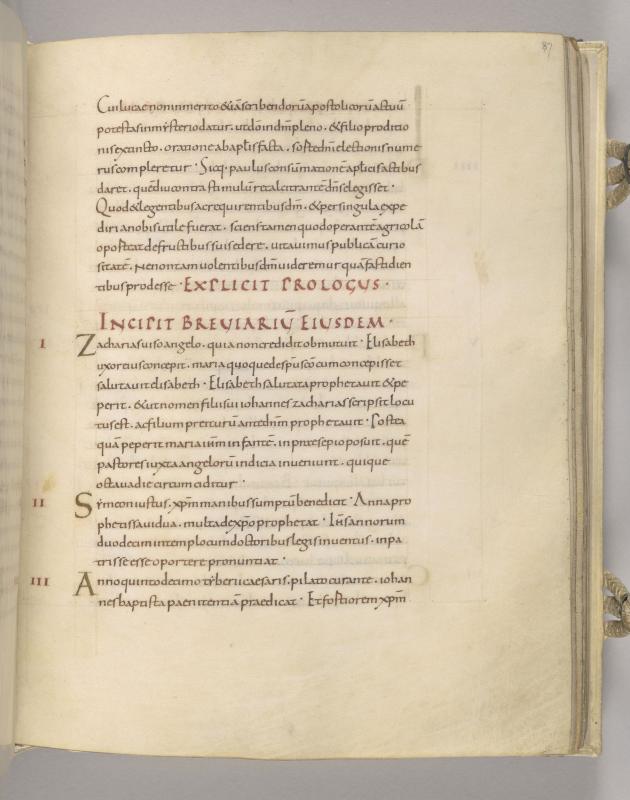 87
Cui lucae non inmerito & iā scribendorū apostolicorū actuū
potestas in mysterio datur. ut do in dm pleno. & filio proditio
nis extincto. oratione ab aplis facta. sorte dni electionis nume
rus compleretur · Sicq· paulus consūmationē aplicis actibus
daret. quē diu contra stimulū recalcitrantē dns elegisset ·
Quod & legentibus ac requirentibus dm. & per singula expe
diri a nobis utile fuerat. sciens tamen quod operantē agricolā
oporteat de fructibus suis edere. uitauimus publicā curio
sitatē. Ne non tam uolentibus dm uideremur quā fastidien
tibus prodesse · EXPLICIT PROLOGUS ·
INCIPIT BREUIARIŪ EIUSDEM ·
I Zacharias uiso angelo. quia non credidit obmutuit · Elisabeth
uxor eius concepit. maria quoque de spū sco cum concepisset
salutauit elisabeth · Elisabeth salutata prophetauit & pe
perit. & ut nomen filii sui iohannes zacharias scripsit locu
tus est. ac filium preiturū ante dnm prophetauit · Postea
quā peperit maria iħm infantē. in praesepio posuit. quē
pastores iuxta angelorū indicia inueniunt. qui que
octaua die circumciditur ·
II Symeon iustus. xpm manibus sumptū benedicit · Anna pro
phetissa uidua. multa de xpo prophetat · Iħs annorum
duodecim in templo cum doctoribus legis inuentus. in pa
tris se esse oportere pronuntiat ·
III Anno quinto decimo tyberii caesaris. pilato curante. iohan
nes baptista paenitentiā praedicat · Et fortiorem xpm